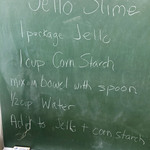 Jello Slime
1 package Jello
1 cup Corn Starch
mix in bowl with spoon
1/2 cup Water
Add to Jello + corn starch